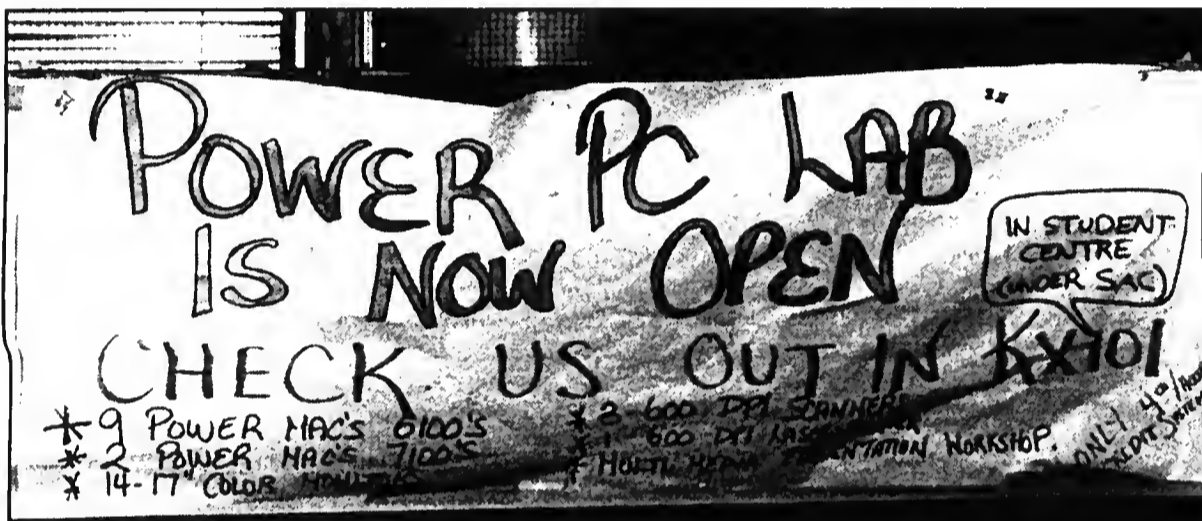 POWER PC LAB
IS NOW OPEN
IN STUDENT
CENTRE
(UNDER SAC)
CHECK US OUT IN KX101
* 9 POWER MAC'S 6100'S
* 2 POWER MAC'S 7100'S
* 14-17" COLOR
* 2 600 DPI SCANNER
* 1 600 DPI
* MULTI MEDIA PRESENTATION WORKSHOP.
ONLY